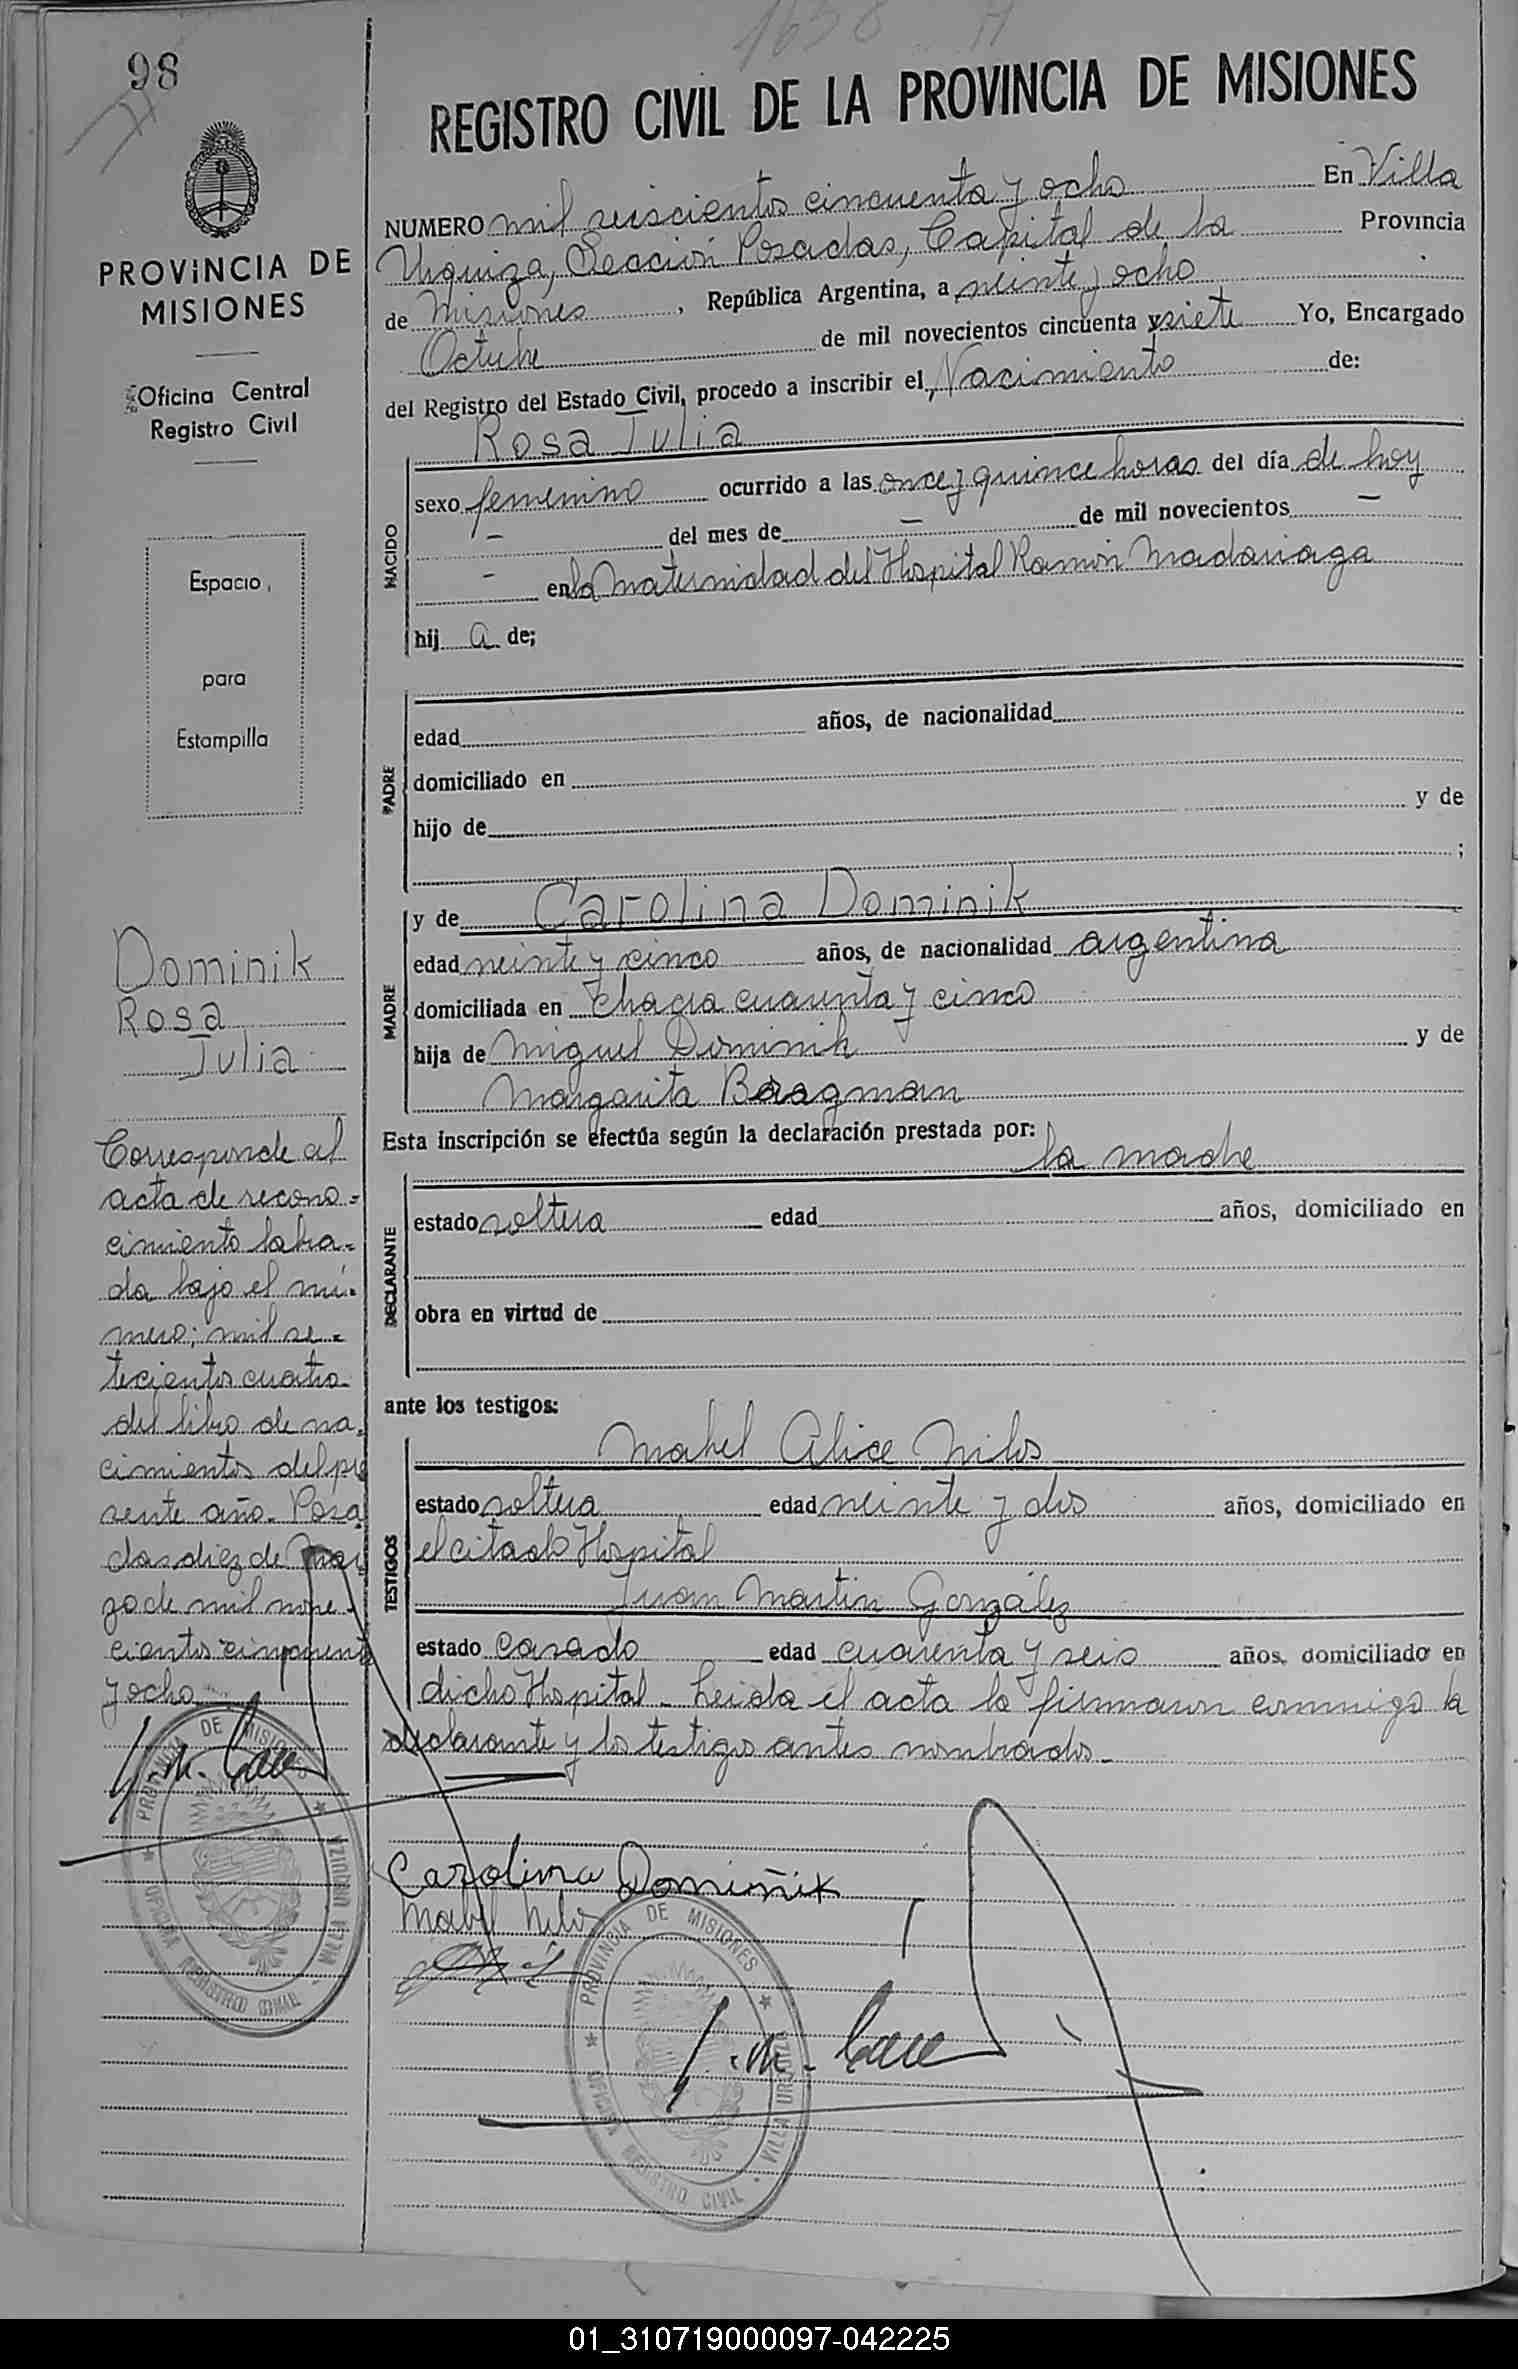 1658 A
98
PROVINCIA DE
MISIONES
Oficina Central
Registro Civil
Espacio
para
Estampilla
Dominik
Rosa
Julia
Corresponde al
acta de recono-
cimiento labra-
da bajo el nú-
mero; mil se-
tecientos cuatro
del libro de na-
cimientos del pre
sente año. Posa
das diez de Mar
zo de mil nove-
cientos cincuenta
y ocho
PROVINCIA DE MISIONES
OFICINA REGISTRO CIVIL VILLA URQUIZA
REGISTRO CIVIL DE LA PROVINCIA DE MISIONES
NUMERO mil seiscientos cincuenta y ocho En Villa
Urquiza, Sección Posadas, Capital de la Provincia
de Misiones, República Argentina, a veinte y ocho
Octubre de mil novecientos cincuenta y siete Yo, Encargado
del Registro del Estado Civil, procedo a inscribir el Nacimiento de:
Rosa Julia
NACIDO
sexo femenino ocurrido a las once y quince horas del día de hoy
- del mes de - de mil novecientos -
- en la Maternidad del Hospital Ramón Madariaga
hij a de;
PADRE
edad años, de nacionalidad
domiciliado en
hijo de y de
;
MADRE
y de Carolina Dominik
edad veinte y cinco años, de nacionalidad argentina
domiciliada en chacra cuarenta y cinco
hija de Miguel Dominik y de
Margarita Bragman
Esta inscripción se efectúa según la declaración prestada por:
la madre
DECLARANTE
estado soltera edad años, domiciliado en
obra en virtud de
ante los testigos:
TESTIGOS
Mabel Alice Nilos
estado soltera edad veinte y dos años, domiciliado en
el citado Hospital
Juan Martin González
estado casado edad cuarenta y seis años, domiciliado en
dicho Hospital - Leida el acta la firmaron conmigo la
declarante y los testigos antes nombrados.-
Carolina Dominik
Mabel Nilos
PROVINCIA DE MISIONES
OFICINA REGISTRO CIVIL VILLA URQUIZA
01_310719000097-042225